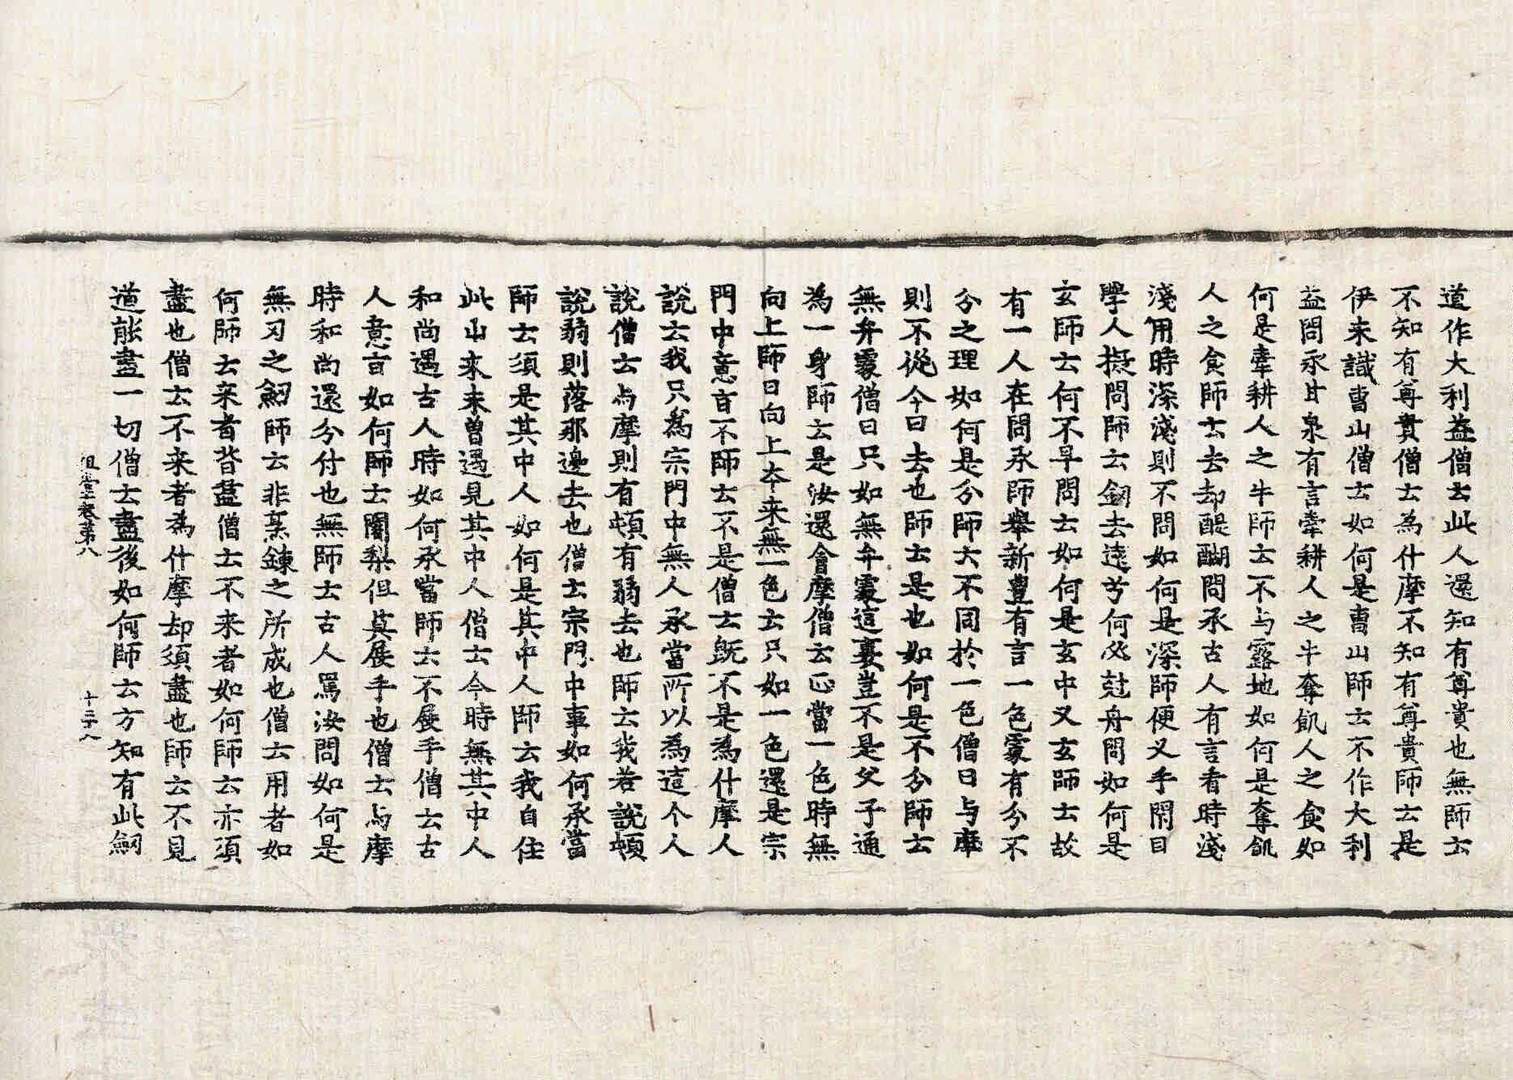 道作大利益僧云此人還知有尊貴也無師云
不知有尊貴僧云為什摩不知有尊貴師云是
伊未識曹山僧云如何是曹山師云不作大利
益問承甘泉有言牽耕人之牛奪飢人之食如
何是牽耕人之牛師云不与露地如何是奪飢
人之食師云去却醍醐問承古人有言看時淺
淺用時深淺則不問如何是深師便叉手閇目
學人擬問師云劒去遠兮何必尅舟問如何是
玄師云何不早問云如何是玄中又玄師云故
有一人在問承師舉新豊有言一色處有分不
分之理如何是分師云不同於一色僧曰与摩
則不從今日去也師云是也如何是不分師云
無弁處僧曰只如無弁處這裏豈不是父子通
為一身師云是汝還會摩僧云正當一色時無
向上師曰向上夲来無一色云只如一色還是宗
門中意㫖不師云不是僧云旣不是為什摩人
說云我只為宗門中無人承當所以為這个人
說僧云与摩則有頓有弱去也師云我若說頓
說弱則落那邊去也僧云宗門中事如何承當
師云須是其中人如何是其中人師云我自住
此山來未曾遇見其中人僧云今時無其中人
和尚遇古人時如何承當師云不展手僧云古
人意㫖如何師云闍梨但莫展手也僧云与摩
時和尚還分付也無師云古人罵汝問如何是
無刃之劒師云非㷩鍊之所成也僧云用者如
何師云来者皆盡僧云不来者如何師云亦須
盡也僧云不来者為什摩却須盡也師云不見
道能盡一切僧云盡後如何師云方知有此劒
祖堂卷第八